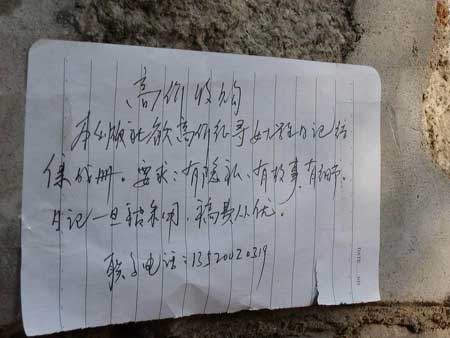 高价收购
本出版社欲高价征寻女学生日记结
集成册。要求:有隐私、有故事、有细节。
日记一旦被采用,稿费从优。
联系电话:13520020319